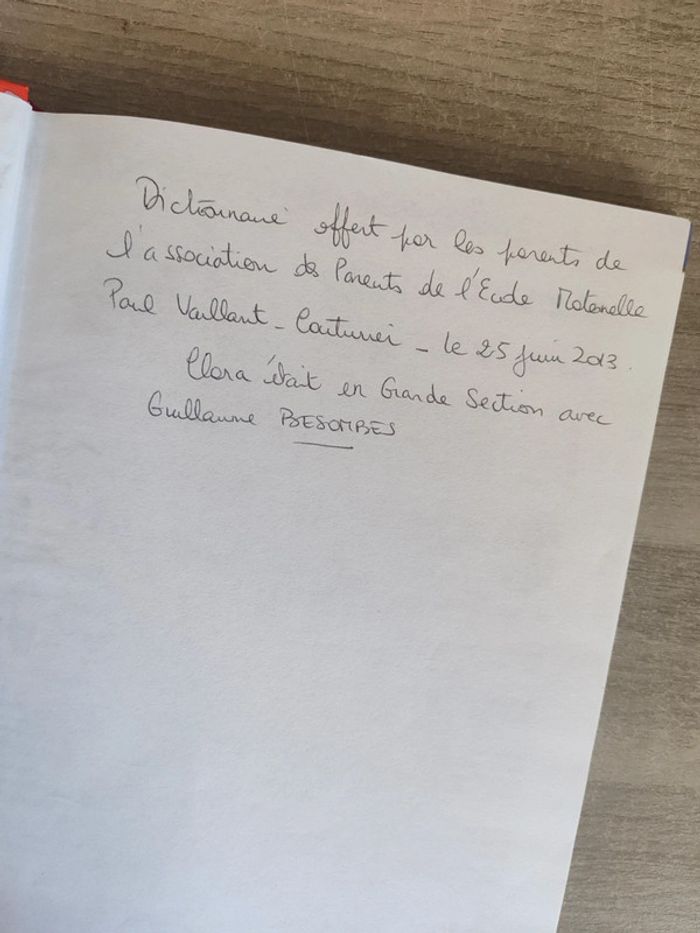 Dictionnaire offert par les parents de
l'association des Parents de l'Ecole Maternelle
Paul Vaillant - Couturier - le 25 juin 2013.
Clara était en Grande Section avec
Guillaume BESOMBES